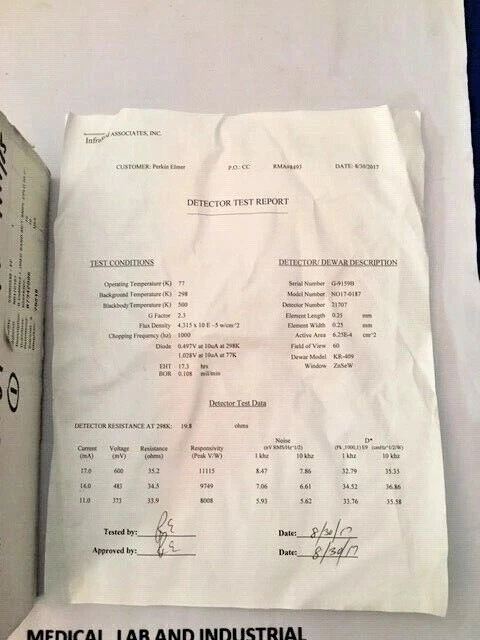 Infrared ASSOCIATES, INC.
CUSTOMER: Perkin Elmer P.O.: CC RMA#8493 DATE: 8/30/2017
DETECTOR TEST REPORT
TEST CONDITIONS
Operating Temperature (K) 77
Background Temperature (K) 298
Blackbody Temperature (K) 500
G Factor 2.3
Flux Density 4.315 x 10 E -5 w/cm^2
Chopping Frequency (hz) 1000
Diode 0.497V at 10uA at 298K
1.028V at 10uA at 77K
EHT 17.3 hrs
BOR 0.108 mil/min
DETECTOR/ DEWAR DESCRIPTION
Serial Number G-9159B
Model Number NO17-0187
Detector Number 21707
Element Length 0.25 mm
Element Width 0.25 mm
Active Area 6.25E-4 cm^2
Field of View 60
Dewar Model KR-409
Window ZnSeW
Detector Test Data
DETECTOR RESISTANCE AT 298K: 19.8 ohms
Noise D*
Current Voltage Resistance Responsivity (nV RMS/Hz^1/2) (Pk,1000,1) E9 (cmHz^1/2/W)
(mA) (mV) (ohms) (Peak V/W) 1 khz 10 khz 1 khz 10 khz
17.0 600 35.2 11115 8.47 7.86 32.79 35.35
14.0 483 34.5 9749 7.06 6.61 34.52 36.86
11.0 373 33.9 8008 5.93 5.62 33.76 35.58
Tested by: Date: 8/30/17
Approved by: Date: 8/30/17
MEDICAL, LAB AND INDUSTRIAL